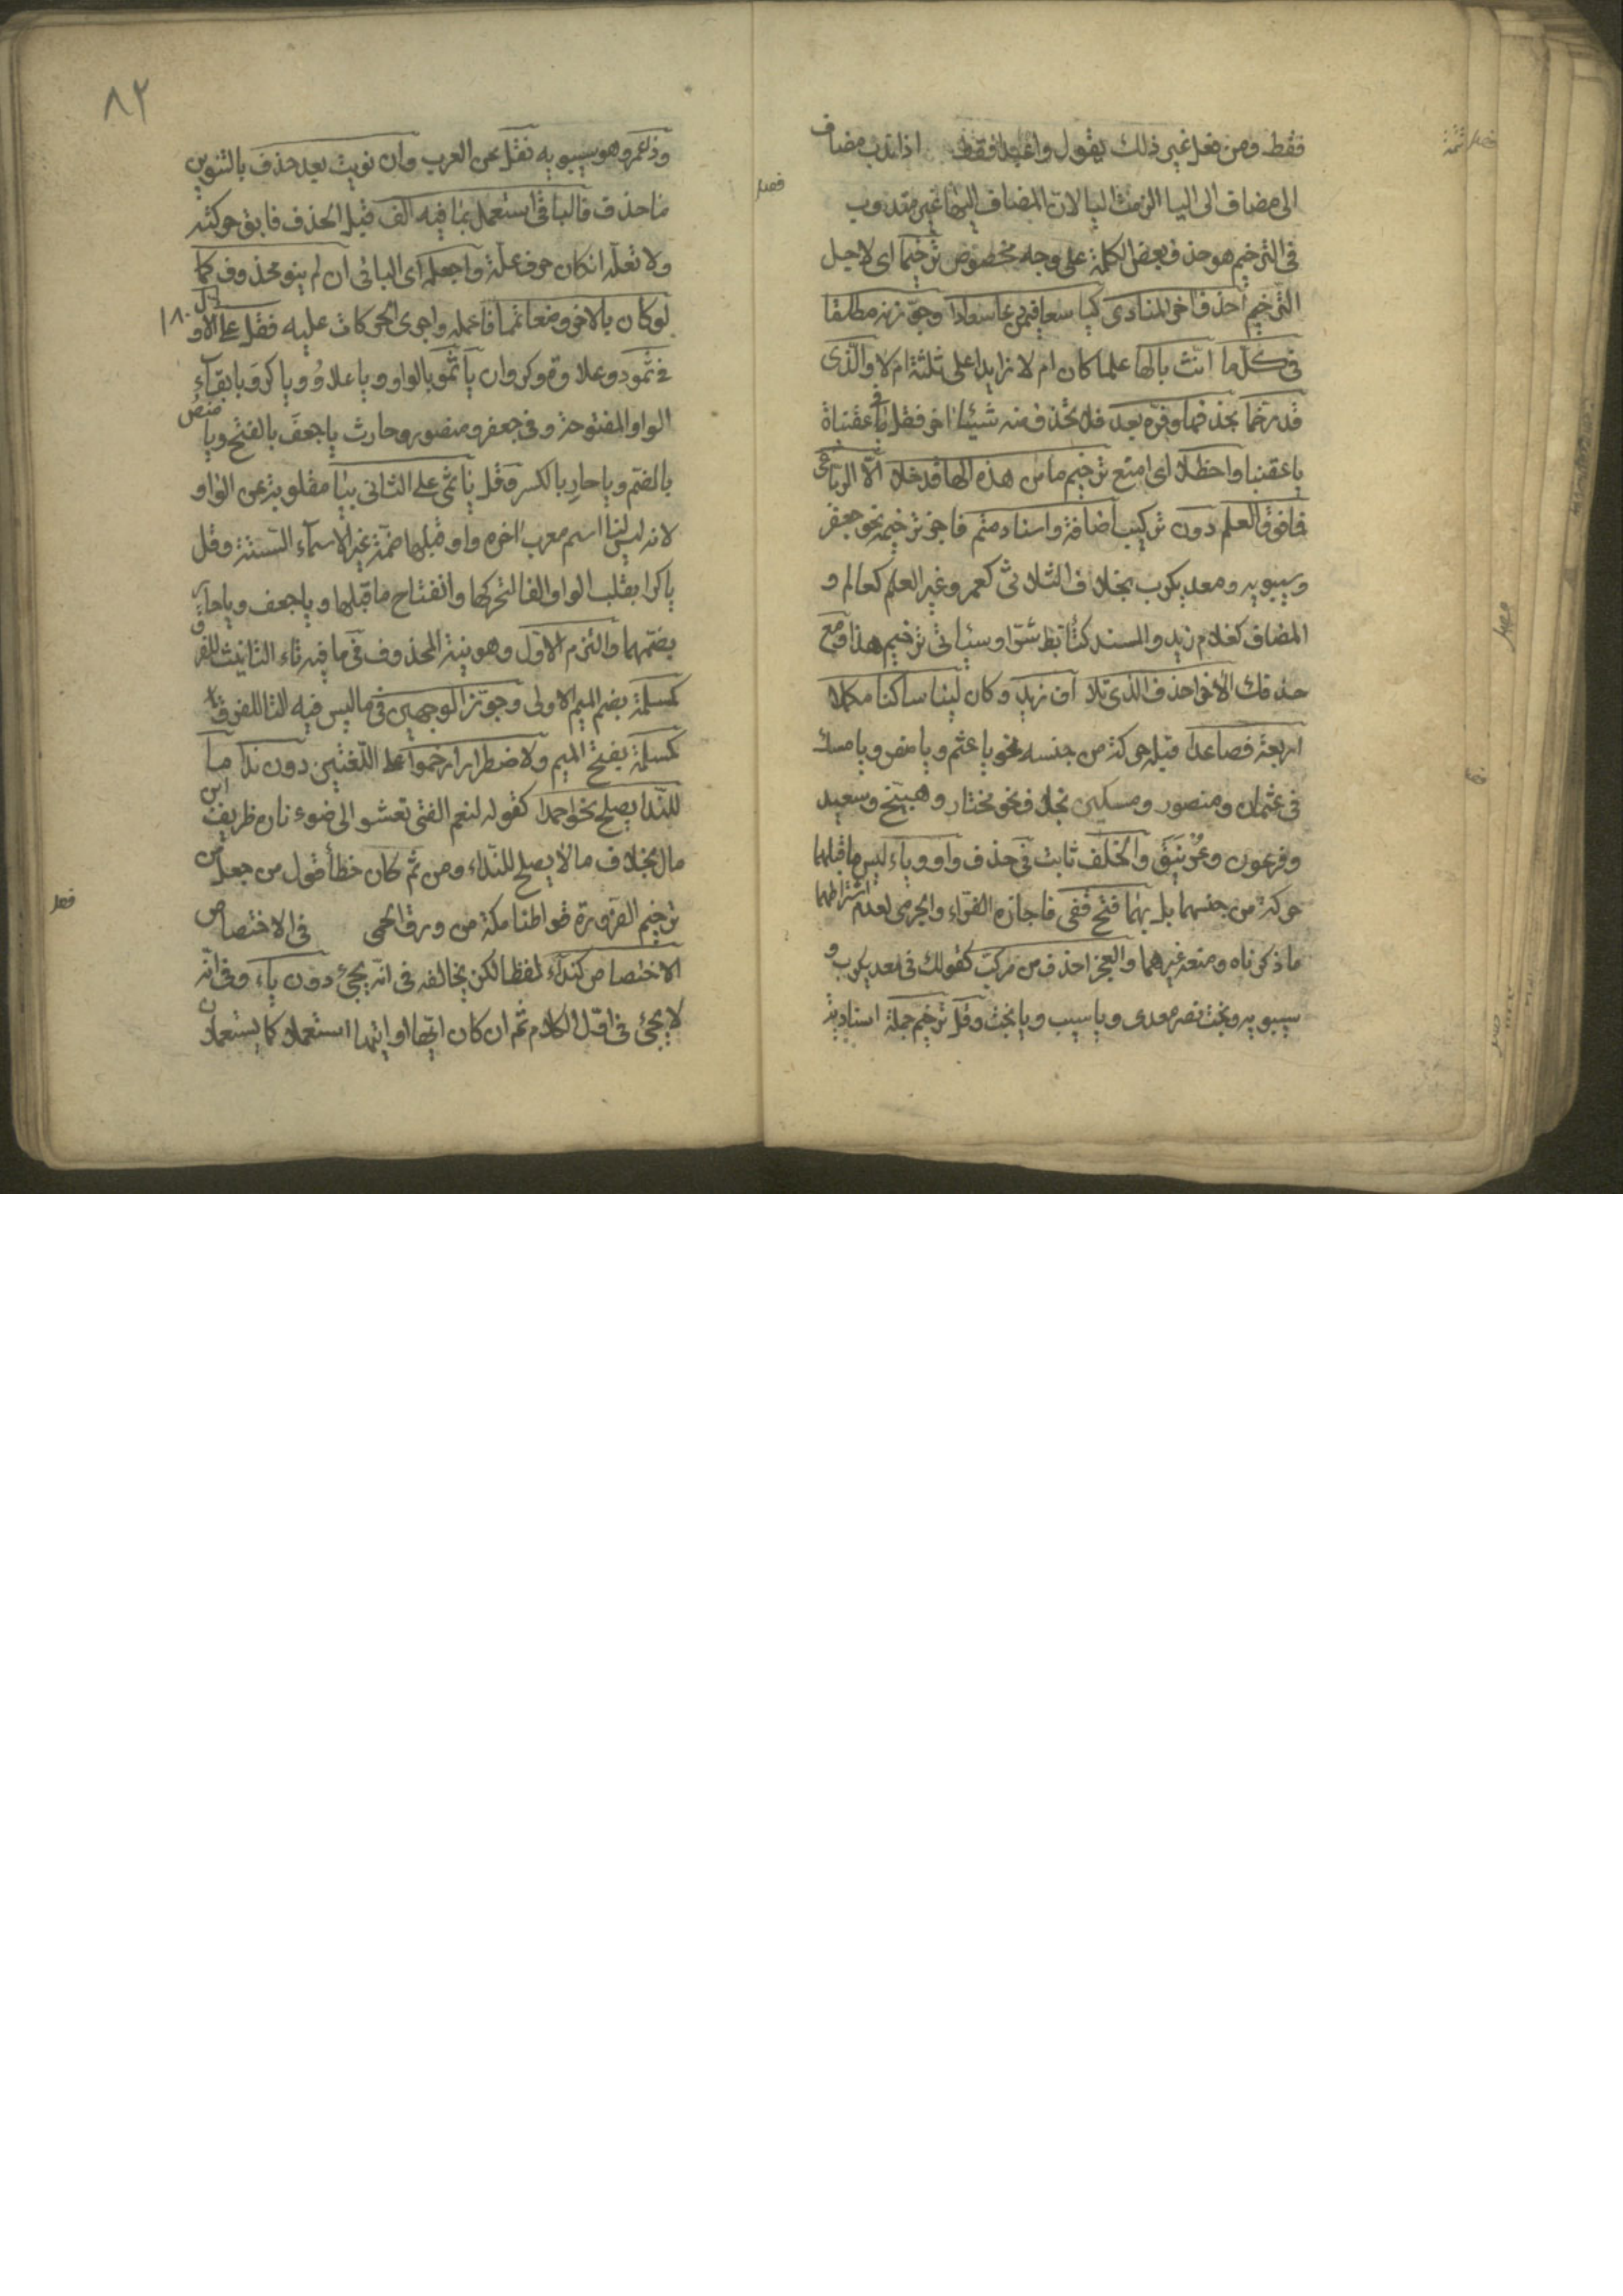 فقط ومن يفعل غير ذلك يقول واعبدا فقط اذا ندب مضاف
الى مضاف الى اليا الزمت اليا لان المضاف اليها غير مندوب
فى الترخيم هو حذف بعض الكلمة على وجه مخصوص ترخيما اى لاجل
الترخيم احذف اخر المنادى كيا سعا فيمن دعا سعادا وجوزنه مطلقا
فى كل ما انث بالها علما كان ام لا زايدا على ثلثة ام لا والذى
قد رخما بحذفها وفره بعد فلا تحذف منه شيئا اخر فقل فى عقنباة
يا عقنبا واحظلا اى امنع ترخيم ما من هذه الها قد خلا الا الرباعى
فما فوق العلم دون تركيب اضافة واسناد متم فاجز ترخيمه نحو جعفر
وسيبويه ومعديكرب بخلاف الثلاثى كعمر وغير العلم كعالم و
المضاف كغلام زيد والمسند كتأبط شرا وسيأتى ترخيم هذا ومع
حذفك الاخر احذف الذى تلا ان زيد وكان لينا ساكنا مكملا
اربعة فصاعدا قبله حركة من جنسه نحو يا عثم ويا منص ويا مسك
فى عثمان ومنصور ومسكين بخلاف نحو مختار وهبيخ وسعيد
وفرعون وغرنيق والخلف ثابت فى حذف واو وياء ليس ما قبلهما
حركة من جنسهما بل بهما فتح قفى فاجازه الفراء والجرمى لعدم اشتراطهما
ما ذكرناه ومنعه غيرهما والعجز احذف من مركب كقولك فى معديكرب و
سيبويه وبخت نصر معدى ويا سيب ويا بخت وقل ترخيم جملة اسنادية
فصل
٨٢
وذا عمرو هو سيبويه نقل عن العرب وان نويت بعد حذف بالتنوين
ما حذف فالباقى استعمل بما فيه الف قبل الحذف فابق حركته
ولا تعله ان كان حرف علة واجعله اى الباقى ان لم ينو محذوف كما
لو كان بالاخر وضعا تمما فاعله واجرى الحركات عليه فقل على الاول
فى ثمود وعلاوة وكروان يا ثمو بالواو ويا علاو ويا كرو بابقاء
الواو المفتوحة وفى جعفر ومنصور وحارث يا جعف بالفتح ويا منص
بالضم ويا حار بالكسر وقل يا ثمى على الثانى بيا مقلوبة عن الواو
لانه ليس لنا اسم معرب اخره واو قبلها ضمة غير الاسماء الستة وقل
يا كرا بقلب الواو الفا لتحركها وانفتاح ما قبلها ويا جعف ويا حار
بضمهما والتزم الاول وهو نية المحذوف فى ما فيه تاء التانيث للفرق
كمسلمة بضم الميم الاولى وجوز الوجهين فى ما ليس فيه التا للفرق
كمسلمة بفتح الميم ولاضطرار ارخموا على اللغتين دون ندا ما
للندا يصلح نحو احمدا كقوله لنعم الفتى تعشو الى ضوء ناره طريف ابن
مال بخلاف ما لا يصلح للنداء ومن ثم كان خطأ قول من جعل من
ترخيم الضرورة قواطنا مكة من ورق الحمى فى الاختصاص
الاختصاص كنداء لفظا لكن يخالفه فى انه يجئ دون ياء وفى انه
لا يجئ فى اول الكلام ثم ان كان ايها او ايتها استعملا كما يستعملان